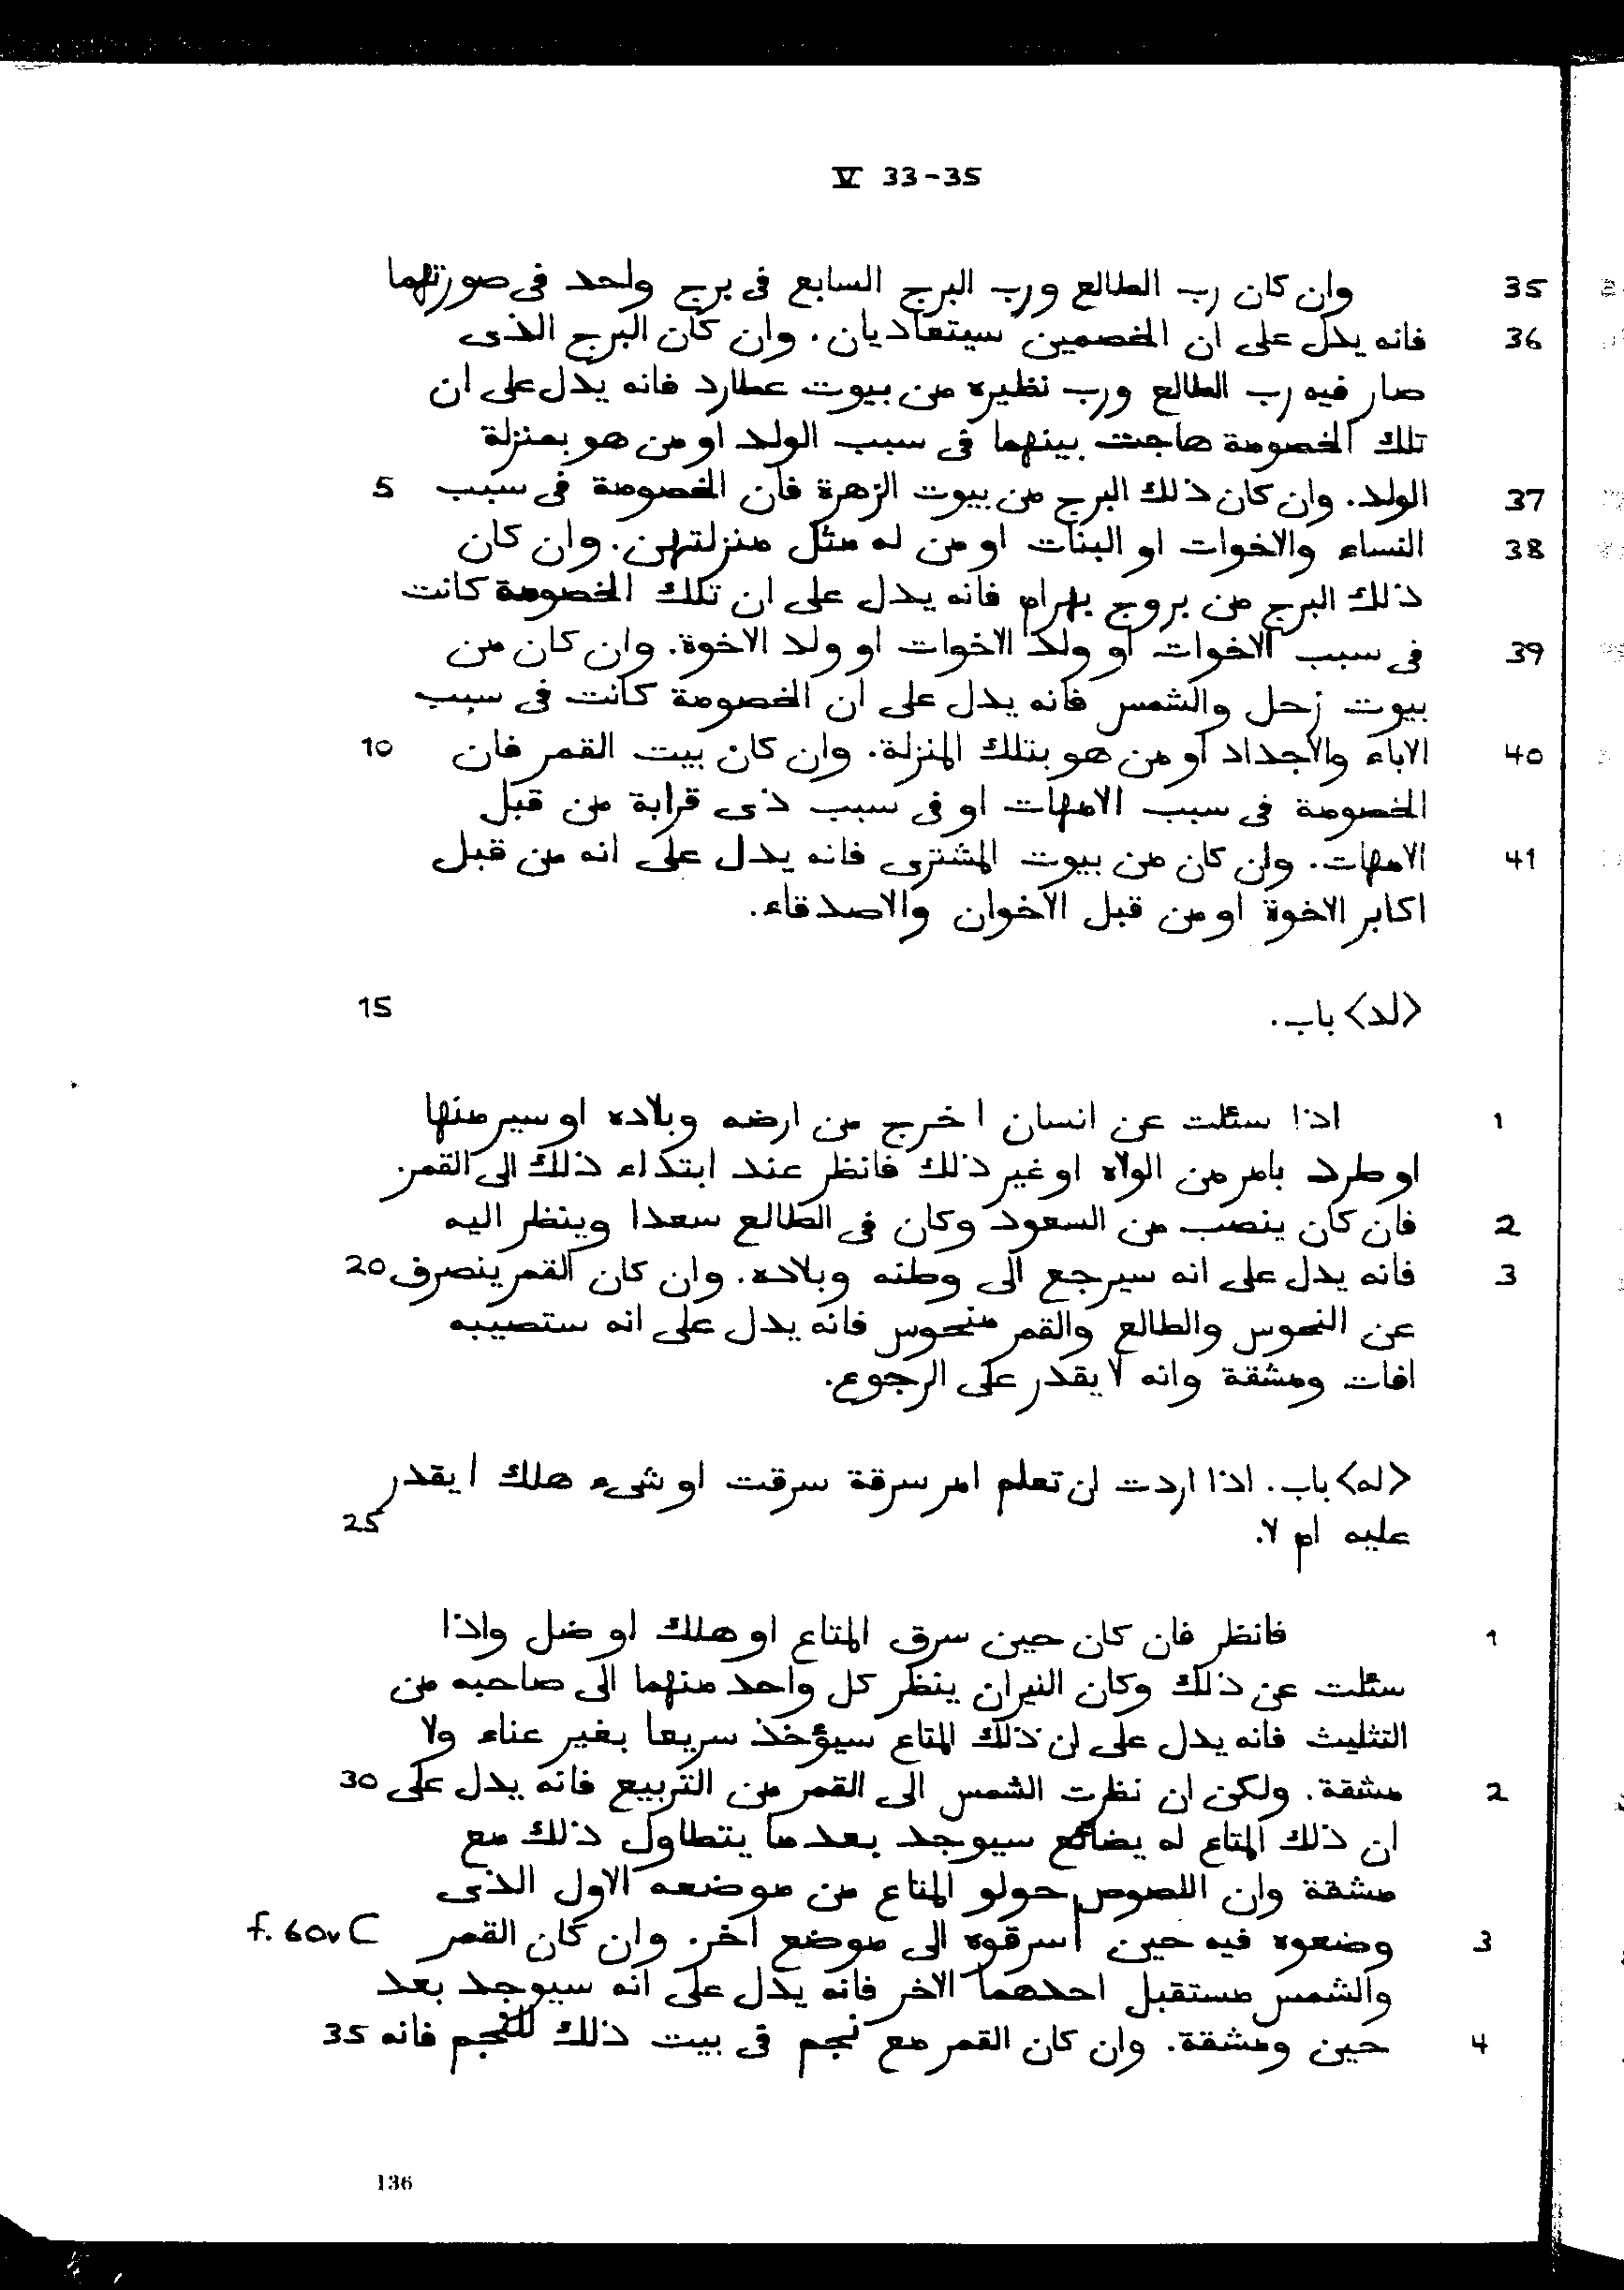 V 33-35
35 وان كان رب الطالع ورب البرج السابع فى برج واحد فى صورتهما
36 فانه يدل على ان الخصمين سيتعاديان. وان كان البرج الذى
صار فيه رب الطالع ورب نظيره من بيوت عطارد فانه يدل على ان
تلك الخصومة هاجت بينهما فى سبب الولد او من هو بمنزلة
37 الولد. وان كان ذلك البرج من بيوت الزهرة فان الخصومة فى سبب 5
38 النساء والاخوات او البنات او من له مثل منزلتهن. وان كان
ذلك البرج من بروج بهرام فانه يدل على ان تلك الخصومة كانت
39 فى سبب الاخوات او ولد الاخوات او ولد الاخوة. وان كان من
بيوت زحل والشمس فانه يدل على ان الخصومة كانت فى سبب
40 الاباء والاجداد او من هو بتلك المنزلة. وان كان بيت القمر فان 10
الخصومة فى سبب الامهات او فى سبب ذى قرابة من قبل
41 الامهات. وان كان من بيوت المشترى فانه يدل على انه من قبل
اكابر الاخوة او من قبل الاخوان والاصدقاء.
<لد> باب. 15
1 اذا سئلت عن انسان اخرج من ارضه وبلاده او سير منها
او طرد بامر من الولاه او غير ذلك فانظر عند ابتداء ذلك الى القمر.
2 فان كان ينصب من السعود وكان فى الطالع سعدا وينظر اليه
3 فانه يدل على انه سيرجع الى وطنه وبلاده. وان كان القمر ينصرف 20
عن النحوس والطالع والقمر منحوس فانه يدل على انه ستصيبه
افات ومشقة وانه لا يقدر على الرجوع.
<له> باب. اذا اردت ان تعلم امر سرقة سرقت او شىء هلك ا يقدر
عليه ام لا. 25
1 فانظر فان كان حين سرق المتاع او هلك او ضل واذا
سئلت عن ذلك وكان النيران ينظر كل واحد منهما الى صاحبه من
التثليث فانه يدل على ان ذلك المتاع سيؤخذ سريعا بغير عناء ولا
2 مشقة. ولكن ان نظرت الشمس الى القمر من التربيع فانه يدل على 30
ان ذلك المتاع له يضائع سيوجد بعد ما يتطاول ذلك مع
مشقة وان اللصوص حولو المتاع من موضعه الاول الذى
3 وضعوه فيه حين اسرقوه الى موضع اخر. وان كان القمر f. 60v C
والشمس مستقبل احدهما الاخر فانه يدل على انه سيوجد بعد
4 حين ومشقة. وان كان القمر مع نجم فى بيت ذلك النجم فانه 35
136